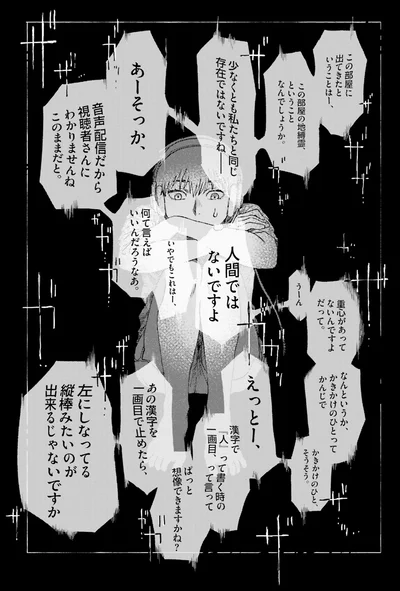 この部屋に
出てきたと
いうことはー、
この部屋の地縛霊、
ということ
なんでしょうか。
少なくとも私たちと同じ
存在ではないですねー
あーそっか、
音声配信だから
視聴者さんに
わかりませんね
このままだと。
何て言えば
いいんだろうなあ。
いやでもこれはー、
人間では
ないですよ
うーん
重心があって
ないんですよ
だって。
なんというか、
かきかけのひとって
かんじで
かきかけのひと、
そうそう。
えっとー、
漢字で
「人」って書く時の
一画目、って言って
ぱっと
想像できますかね?
あの漢字を
一画目で止めたら、
左にしなってる
縦棒みたいのが
出来るじゃないですか